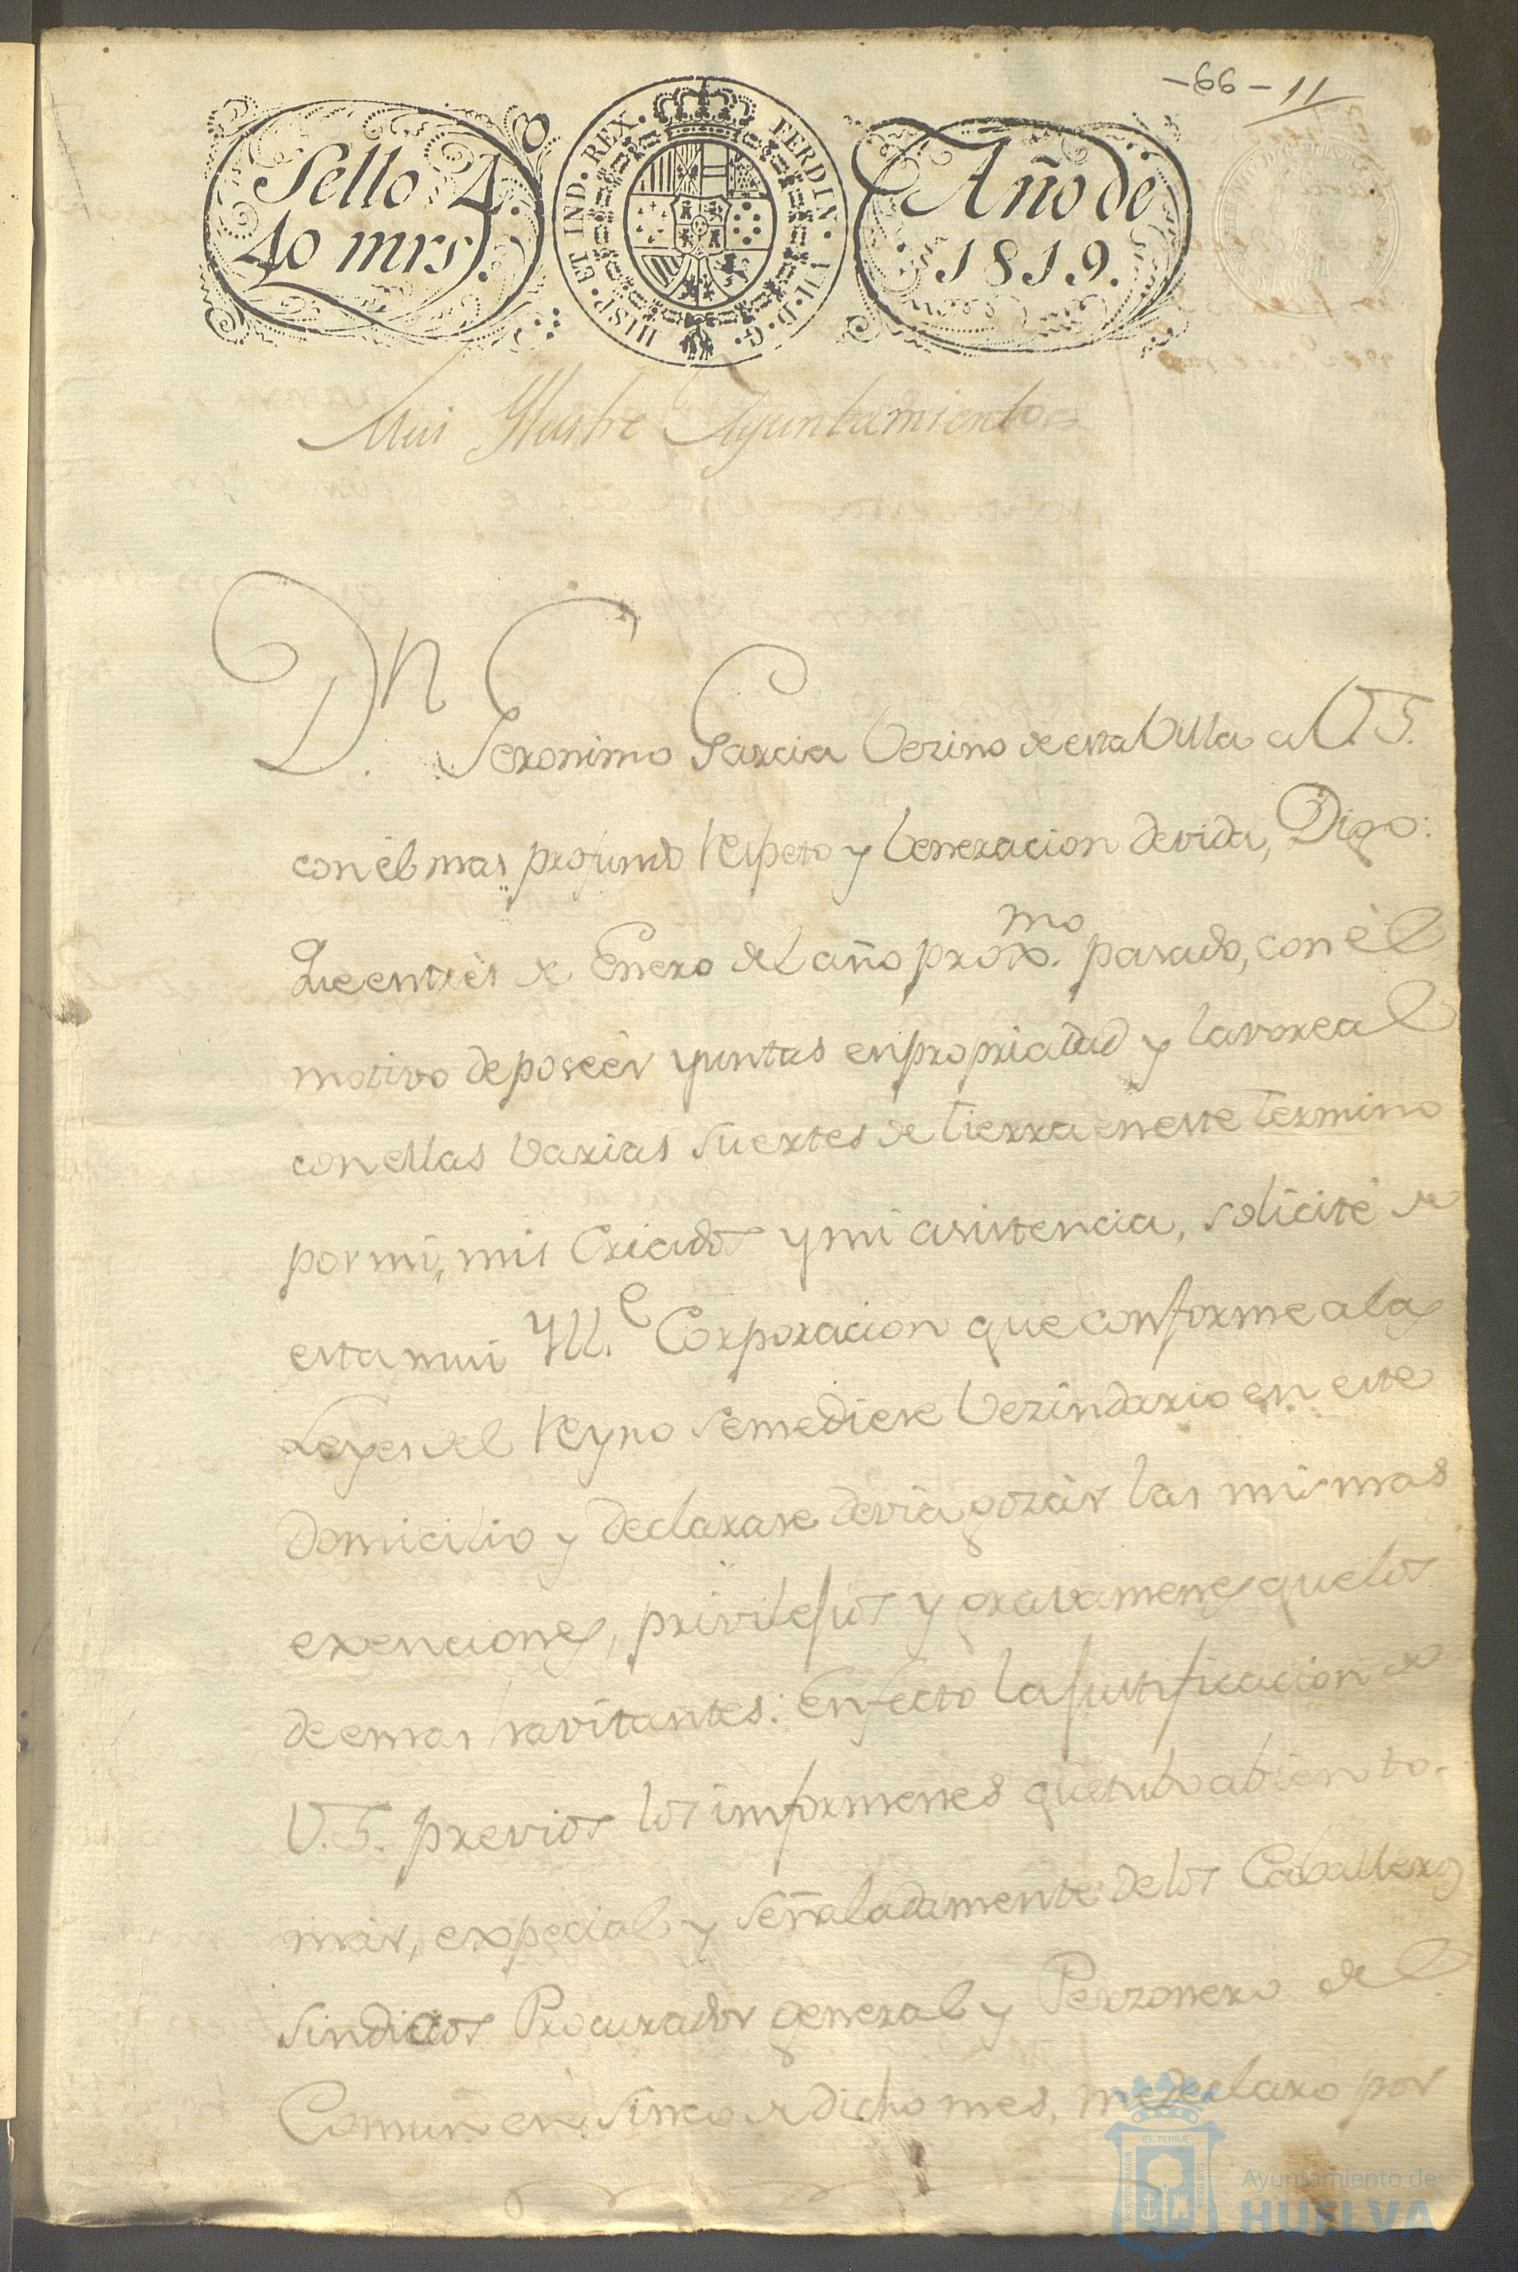 -66- 11
Sello 4.
40 mrs.
HISP. ET IND. REX. FERDIN. VII. D. G.
Año de
1819.
Mui Ylustre Ayuntamiento
Dn. Jeronimo Garcia Vezino de esta Villa a V.S.
con el mas profundo respeto y Veneracion devida, Digo:
Que en tres de Enero del año proxmo. pasado, con el
motivo de poseer yuntas en propriedad y lavorea
con ellas varias suertes de tierra en este termino
por mi, mis Criados y mi asistencia, solicité de
esta mui Yll.e Corporacion que conforme a las
Leyes del Reyno se me diese Vezindario en este
Domicilio y declarase devia gozar las mismas
exenciones, privilejios y gravamenes que los
de emas havitantes: En fecto la justificacion de
V.S. previos los informenes que tubo abien to-
mar, expecial y señaladamente de los Caballeros
sindicos Procurador general y Perzonero del
Comun en sinco de dicho mes, me declaro por
Ayuntamiento de
HUELVA